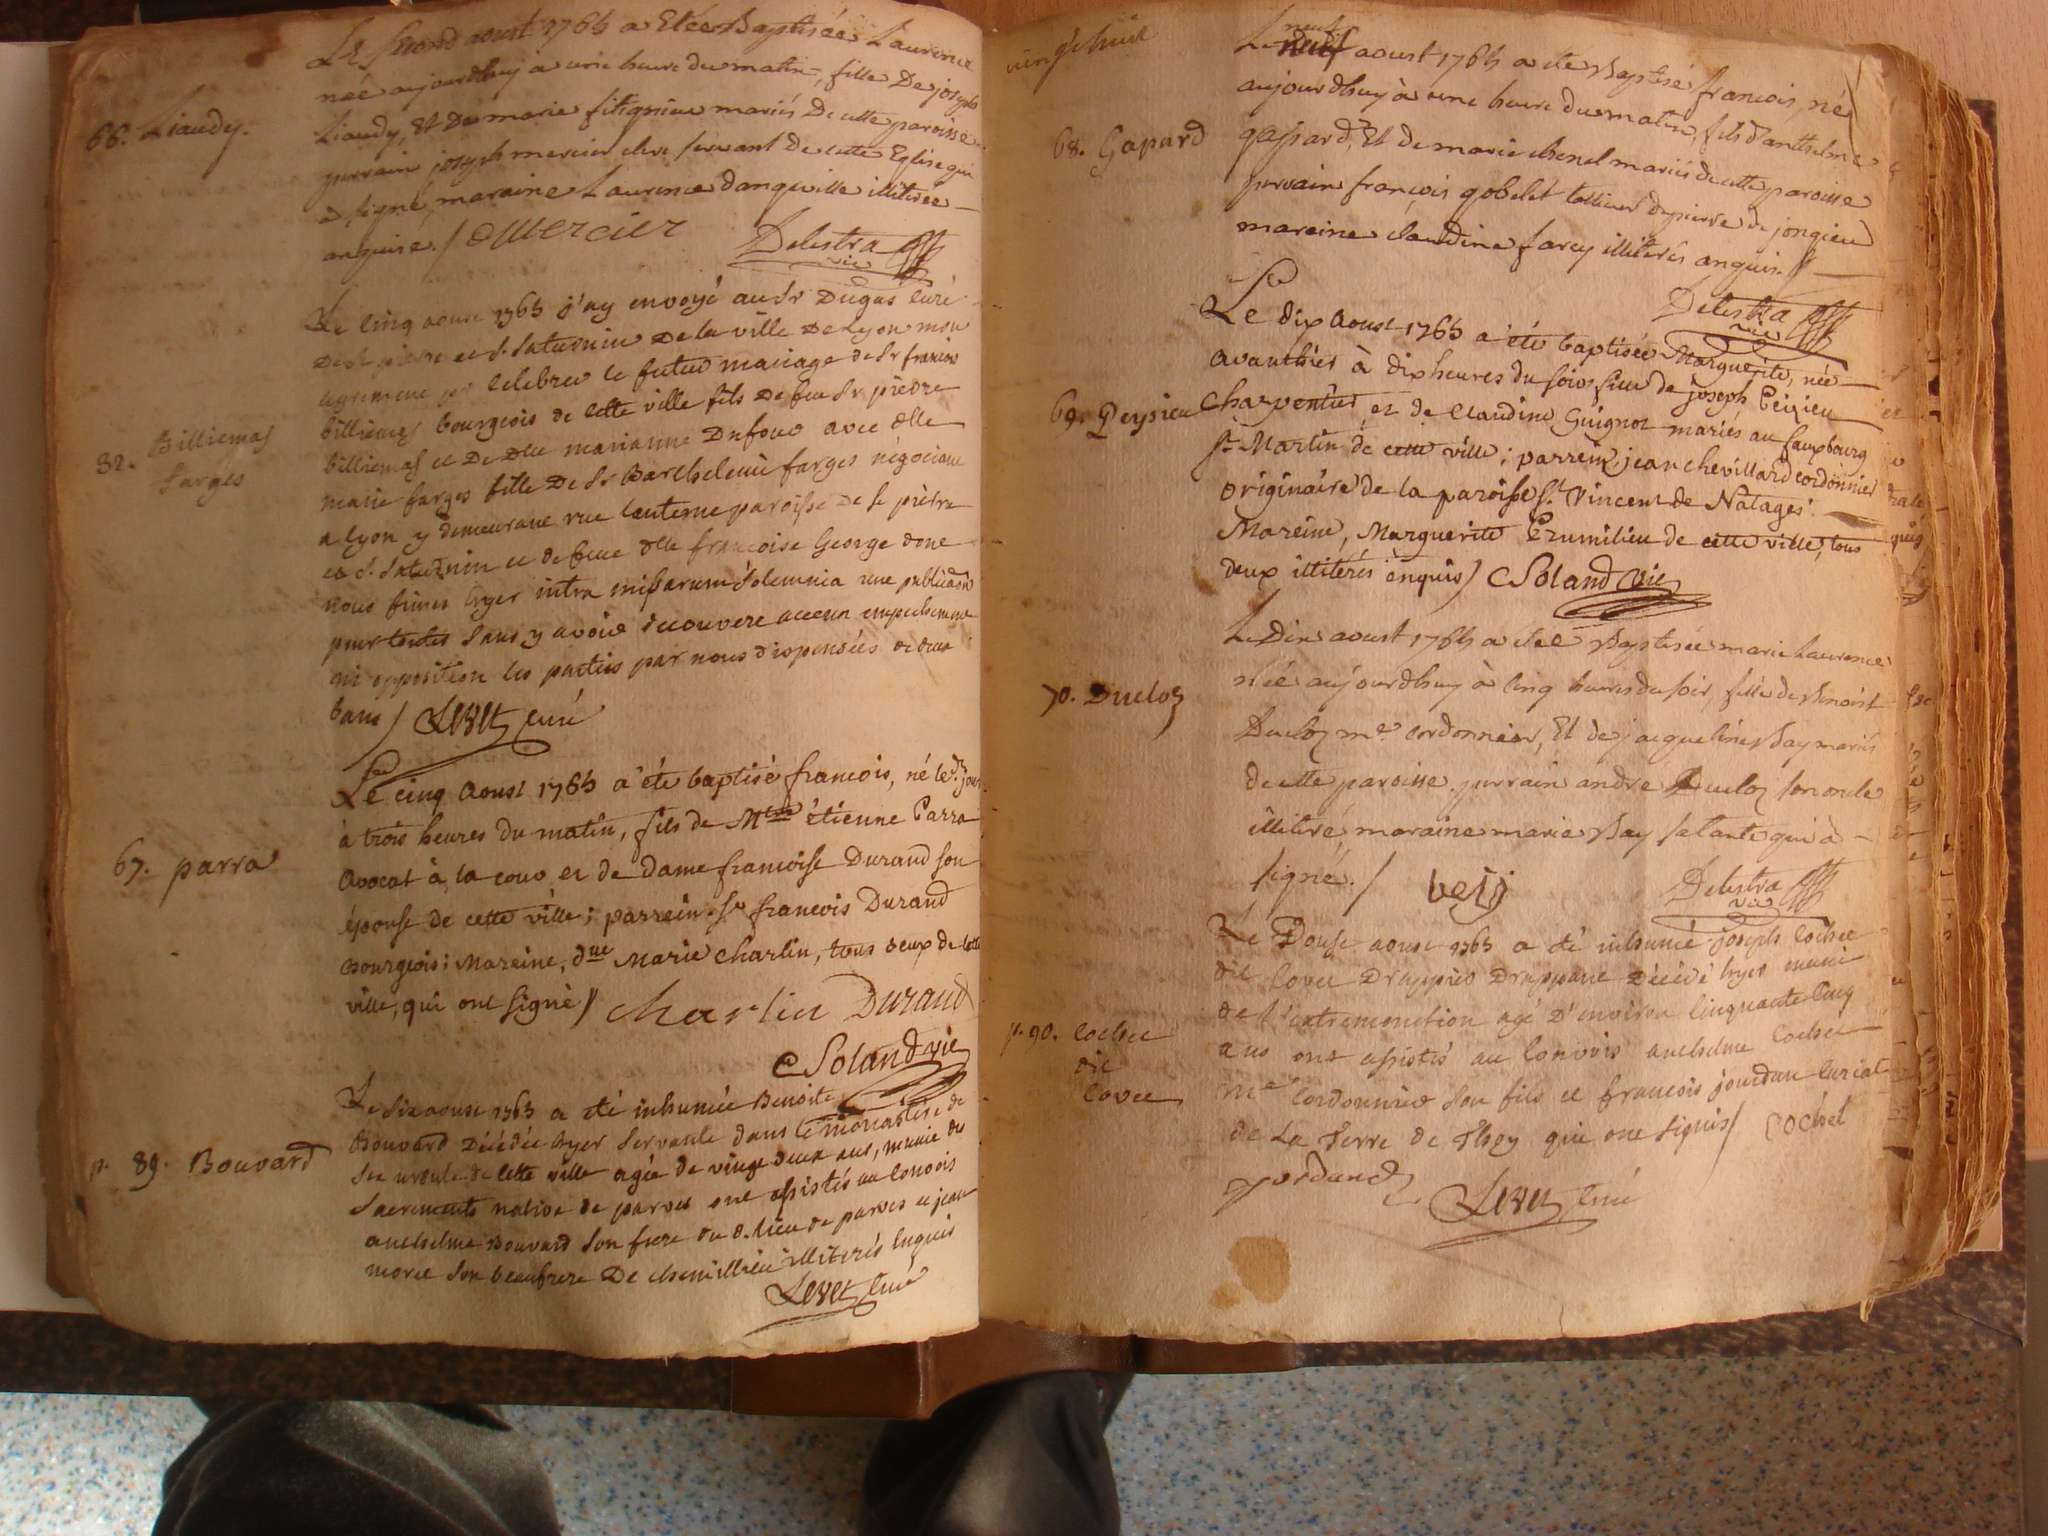 Le second aoust 1765 a Etée Baptisée Laurence
née aujourdhuy a une heure du matin, fille De joseph
66. Liaudy.
Liaudy, Et De marie fitignieu mariés De cette paroisse
parrain joseph mercier clerc servant De cette Eglise qui
a signé, maraine Laurence dangeville illitérée
enquise. / Mercier
Delestra vic
Le cinq aoust 1765 j'ay envoyé au Sr Dugas curé
De st pierre et st saturnin De la ville De Lyon mon
agrement pr celebrer le futur mariage de Sr francois
32. Billiemas farges
billiemas bourgeois de cette ville fils De feu Sr pierre
billiemas et De Dlle marianne Dufour avec Dlle
marie farges fille De Sr Barthelemi farges négociant
a Lyon y demeurant rue lanterne paroisse De st pierre
et st saturnin et de feue Dlle francoise George dont
nous fimes hyer intra missarum solemnia une publication
pour toutes sans y avoir decouvert aucun empechement
ni opposition les parties par nous dispensées de deux
bans / Levet curé
Le cinq Aoust 1765 a été baptisé francois, né led. jour
à trois heures du matin, fils de Mtre étienne Parra
67. parra
Avocat à la cour et de dame francoise Durand son
épouse de cette ville; parrein Sr francois Durand
Bourgeois; Mareine, dlle Marie Charlin, tous deux de cette
ville, qui ont signé // Charlin Durand
Soland vic
Le six aoust 1765 a eté inhumée Benoite
p. 89. Bouvard
Bouvard Décédée hyer servante dans le monastere de
Ste ursule de cette ville agée de vingt deux ans, munie des
Sacrements native de parves ont assistés au convois
anthelme Bouvard son frere du d. lieu de parves et jean
morel son beaufrere De chemillieu illiterés Enquis
Levet curé
vingt huit
neuf
Le neuf aoust 1765 a ete Baptisé francois, né
aujourdhuy à une heure du matin, fils d'anthelme
68. Gapard
gassard, Et de marie chenel mariés de cette paroisse
parrain françois gobelet de pierre de jongieu
mareine claudine farcy illiterés enquis. /
Delestra vic
Le dix Aoust 1765 a été baptisée Marguerite, née
avanthier à dix heures du soir, fille de joseph Peizieu
69. Peysieu
Charpentier et de Claudine Guignot mariés au fauxbourg
St. Martin de cette ville; parrein, jean chevillard cordonnier
originaire de la paroisse St. Vincent de Natages;
Mareine, Marguerite Prumilieu de cette ville, tous
deux illitérés enquis / Soland vic
Le Dix aoust 1765 a etee Baptisée marie Laurence
70. Ducloz
née aujourdhuy à cinq heures du soir, fille de Benoist
Ducloz me. cordonnier, Et de jacqueline Bay mariés
de cette paroisse. parrain andré Ducloz son oncle
illitéré, maraine marie Bay sa tante qui à
signé. /
Delestra vic
Le Douse aoust 1765 a été inhumé joseph Cochet
dit Covet Drappier Drappant Décédé hyer muni
de l'extremonction agé D'environ cinquante cinq
p. 90. Cochet
dit
Covet
ans ont assistés au convois anthelme Cochet
me Cordonnier son fils et francois jourdan
de La Terre de Thoy qui ont signés / Cochet
jordand
Levet curé